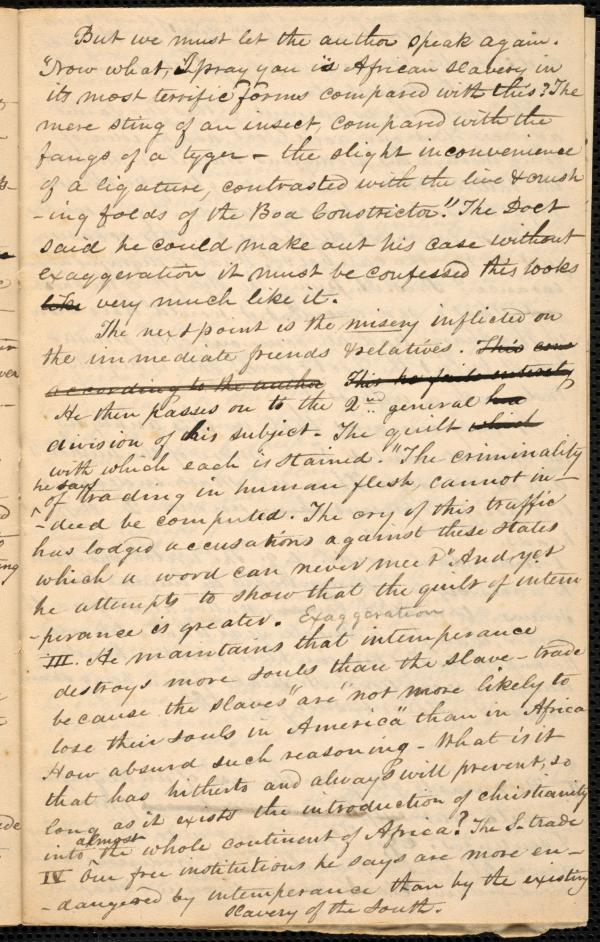 But we must let the author speak again.
"Now what, I pray you is African slavery in
its most terrific forms compared with this? The
mere sting of an insect, compared with the
fangs of a tyger - the slight inconvenience
of a ligature, contrasted with the live & crush
-ing folds of the Boa Constrictor!" The Doct
said he could make out his case without
exaggeration it must be confessed this looks
like very much like it.
The next point is the misery inflicted on
the immediate friends & relatives. This
according to the author This he
He then passes on to the 2nd general
division of his subject - The guilt which
with which each is stained. "The criminality
he says
of trading in human flesh, cannot in-
-deed be computed. The cry of this traffic
has lodged accusations against these states
which a word can never meet" And yet
he attempts to show that the guilt of intem
-perance is greater. Exaggeration
III. He maintains that intemperance
destroys more souls than the slave-trade
because the slaves "are not more likely to
lose their souls in America" than in Africa
How absurd such reasoning - What is it
that has hitherto and always will prevent, so
long as it exists the introduction of christianity
almost
into the whole continent of Africa? The S-trade
IV Our free institutions he says are more en-
-dangered by intemperance than by the existing
slavery of the South.